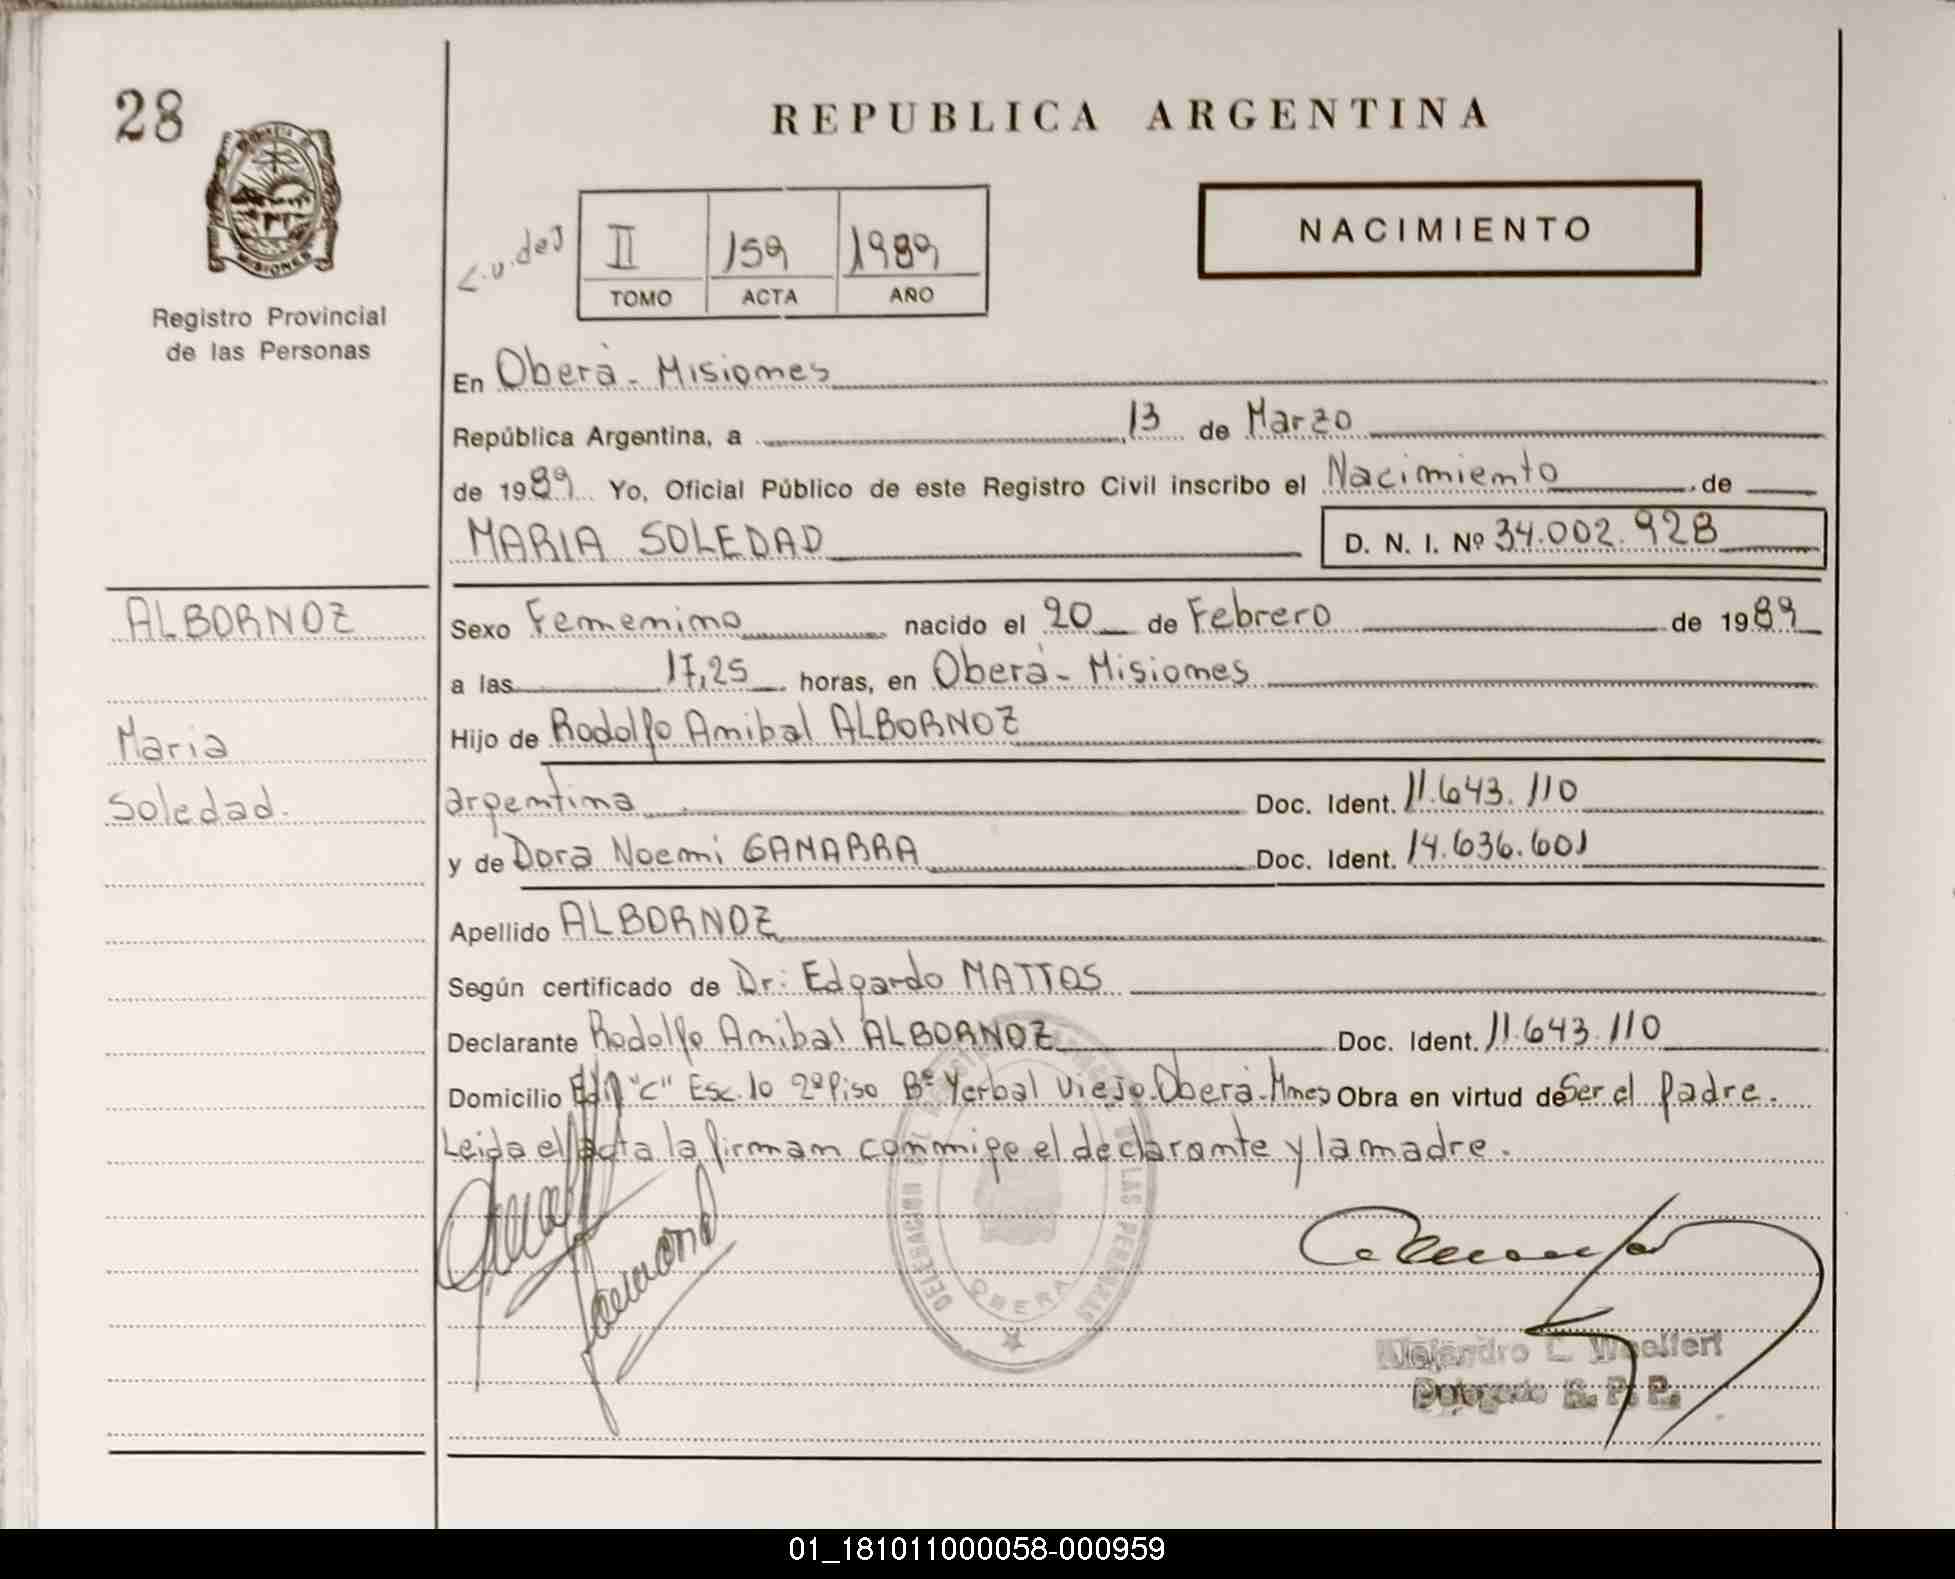 28
MISIONES
Registro Provincial
de las Personas
REPUBLICA ARGENTINA
NACIMIENTO
II 159 1989
TOMO ACTA AÑO
En Oberá - Misiones
República Argentina, a 13 de Marzo
de 1989 Yo, Oficial Público de este Registro Civil inscribo el Nacimiento de
MARIA SOLEDAD D. N. I. Nº 34.002.928
ALBORNOZ
Maria
Soledad.
Sexo Femenino nacido el 20 de Febrero de 1989
a las 17,25 horas, en Oberá - Misiones
Hijo de Rodolfo Anibal ALBORNOZ
argentina Doc. Ident. 11.643.110
y de Dora Noemi GAMARRA Doc. Ident. 14.636.601
Apellido ALBORNOZ
Según certificado de Dr: Edgardo MATTOS
Declarante Rodolfo Anibal ALBORNOZ Doc. Ident. 11.643.110
Domicilio Edif "C" Esc. 10 2º Piso Bº Yerbal Viejo. Oberá - Mnes Obra en virtud de Ser el padre.
Leida el acta la firman conmigo el declarante y la madre.
DELEGACION LAS PERSONAS
OBERA
Alejandro C. Woelfert
Delegado R. P. P.
01_181011000058-000959